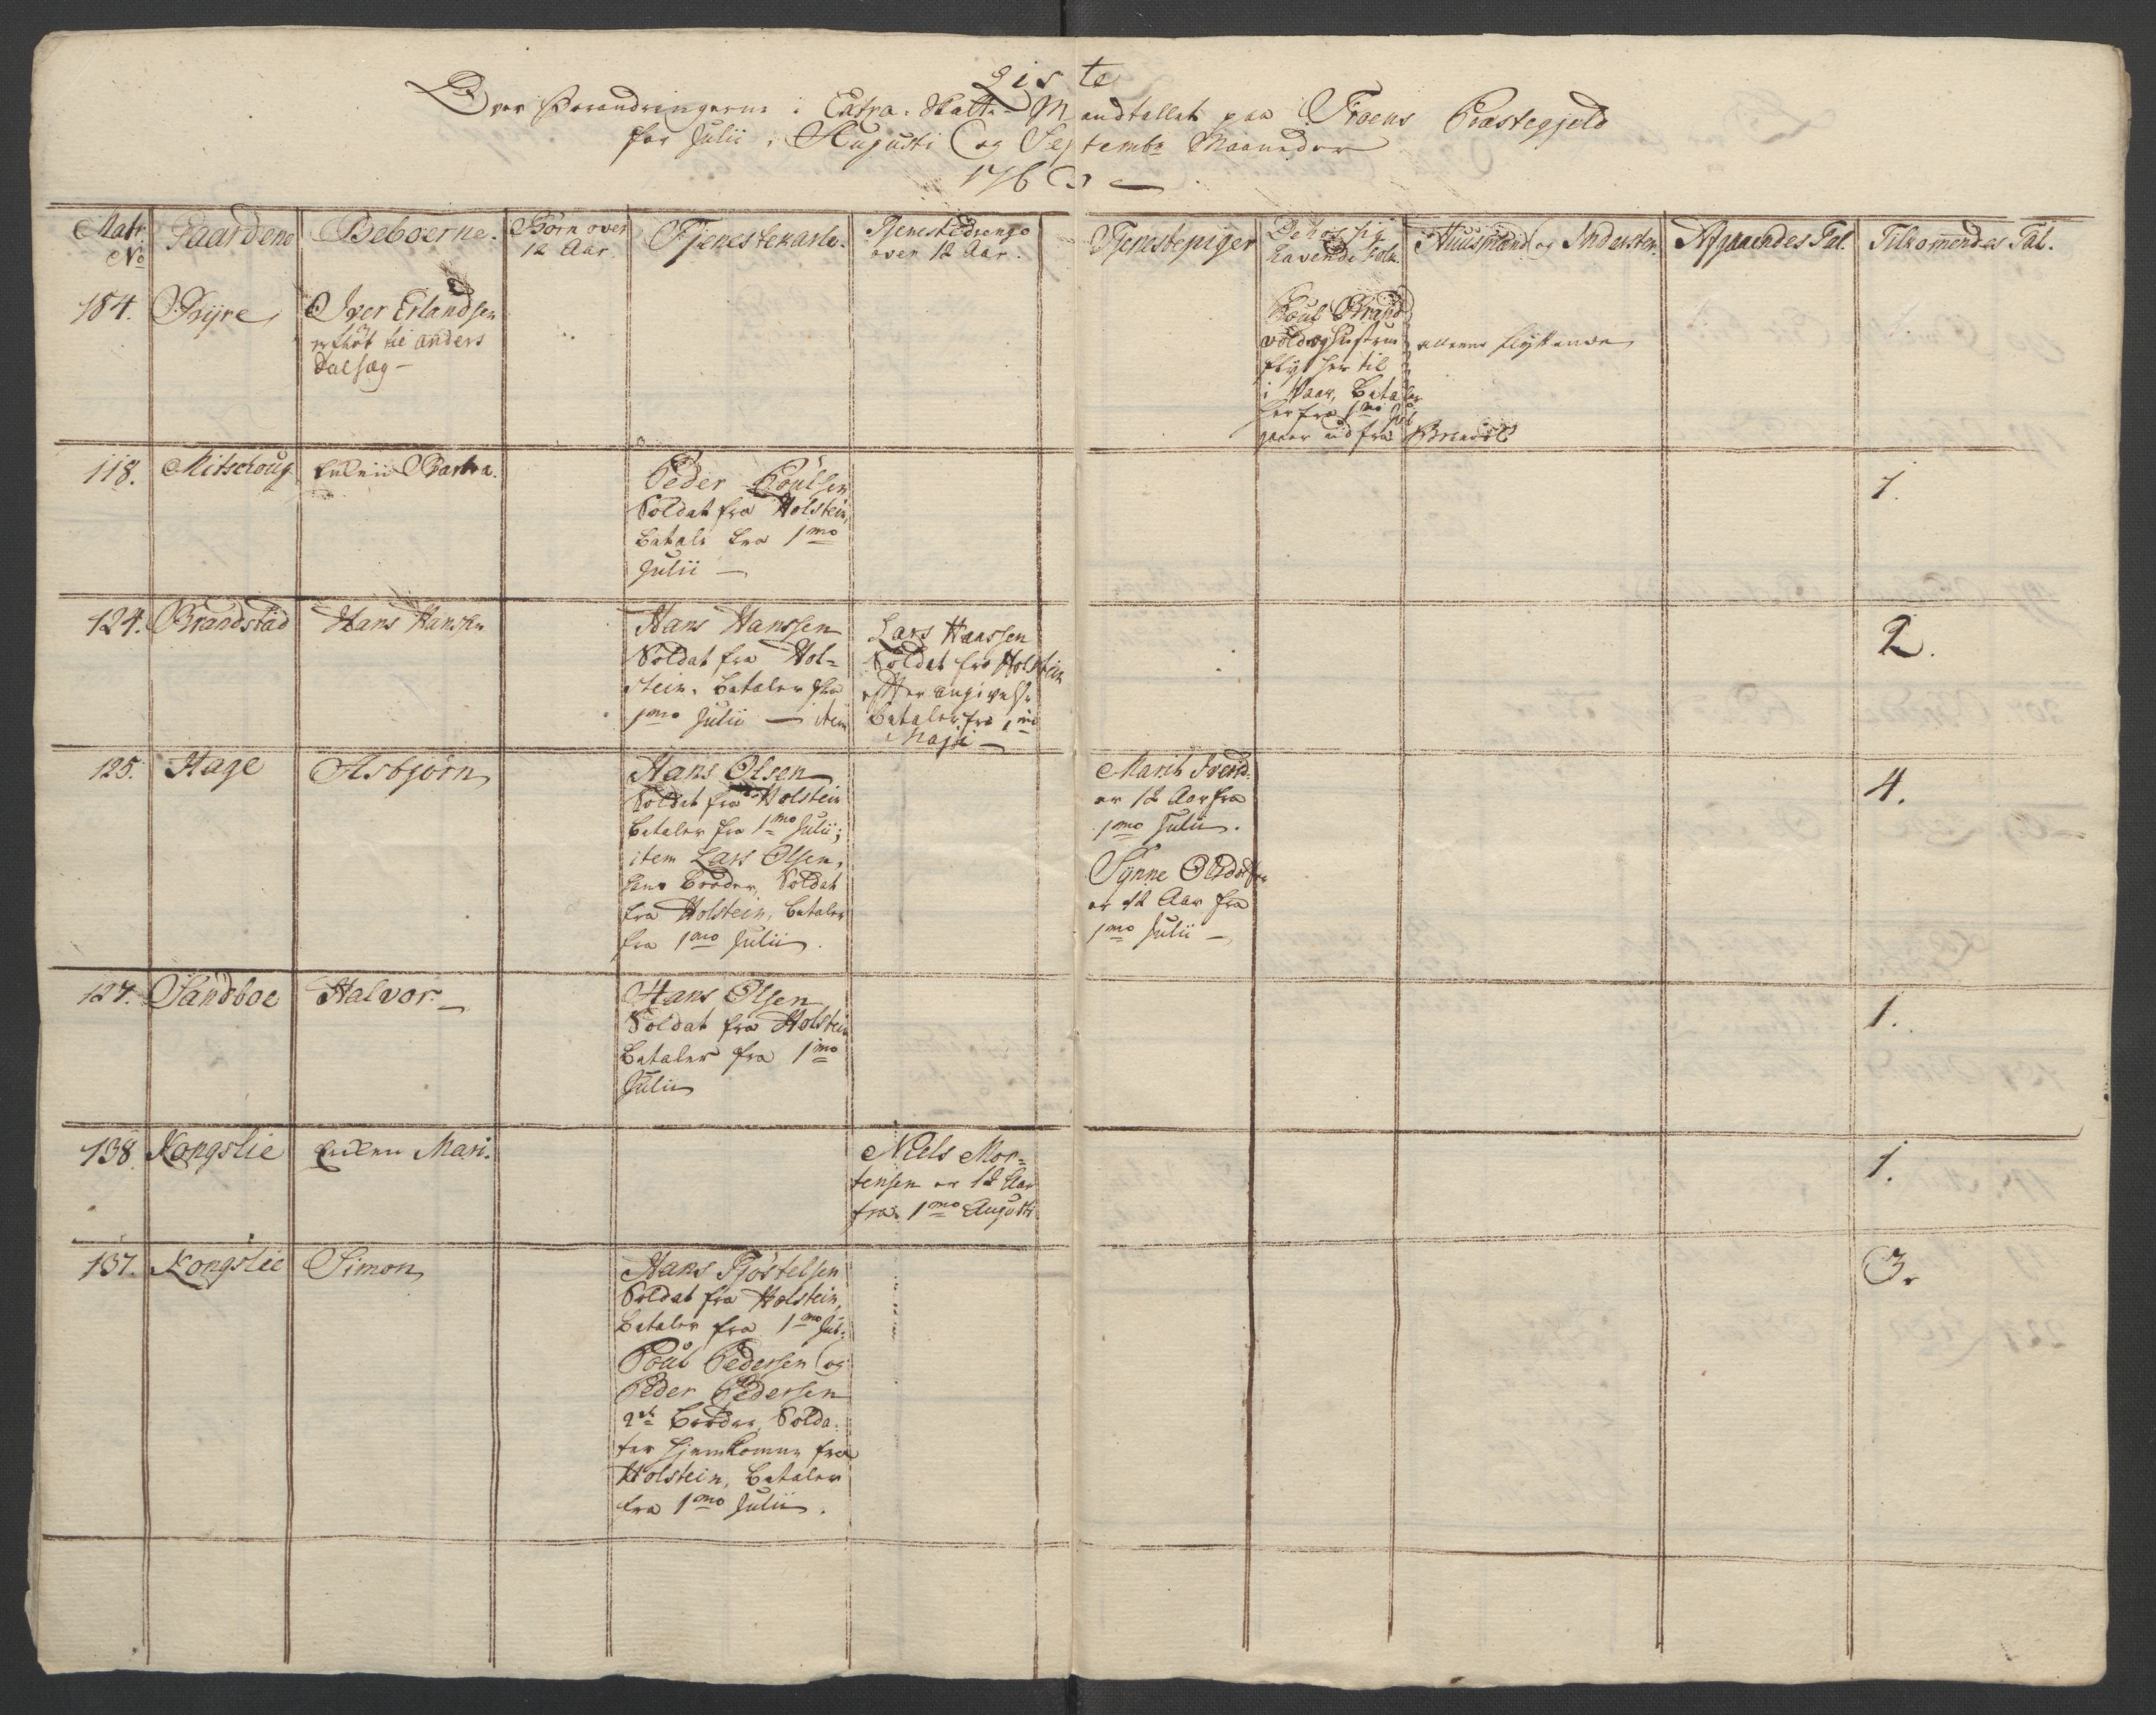 Liste
Over Forandringerne i Extra-Skatte-Mandtallet paa Froens Præstegjeld
for Julii, Augusti og Septembr Maaneder
1763
Matr. No
Gaardene
Beboerne.
Børn over 12 Aar.
Tjenestekarle.
Tjenestedrenge over 12 Aar.
Tjenestepiger
De hos sig havende Folk.
Huusmænd og Inderster.
Afgaaendes Tal.
Tilkommendes Tal.
184. Byre
Iver Erlandsen
til Anders
Dalsæg
Poul Brand
vold og Hustrue
flyt her til
i Vaar, betaler
her fra 1mo Juli
gaaer ud fra Brandvol
alleene flyttende
118. Mitschoug
Enken Barbra.
Peder Poulsen
Soldat fra Holstein,
betaler fra 1mo
Julii
1.
124. Brandstad
Hans Hansen
Hans Hanssen
Soldat fra Hol-
stein, betaler fra
1mo Julii item
Lars Hanssen
Soldat fra Holstein
efter angivelse
betaler fra 1mo
Maji
2.
125. Hage
Asbjørn
Hans Olsen
Soldat fra Holstein
betaler fra 1mo Julii;
item Lars Olsen,
hans Broder, Soldat
fra Holstein, betaler
fra 1mo Julii.
Marit Iversd.
er 12 Aar fra
1mo Julii.
Synne
er 12 Aar fra
1mo Julii
4.
127. Sandboe
Halvor.
Hans Olsen
Soldat fra Holstein
betaler fra 1mo
Julii
1.
138. Kongslie
Enken Mari.
Niels Mor-
tensen er 12 Aar
fra 1mo Augusti
1.
137. Kongslie
Simon
Hans Tjøstelsen
Soldat fra Holstein,
betaler fra 1mo Juli.
Poul Pedersen og
Peder Pedersen
2de Brødre, Solda-
ter hjemkomne fra
Holstein, betaler
fra 1mo Julii.
3.